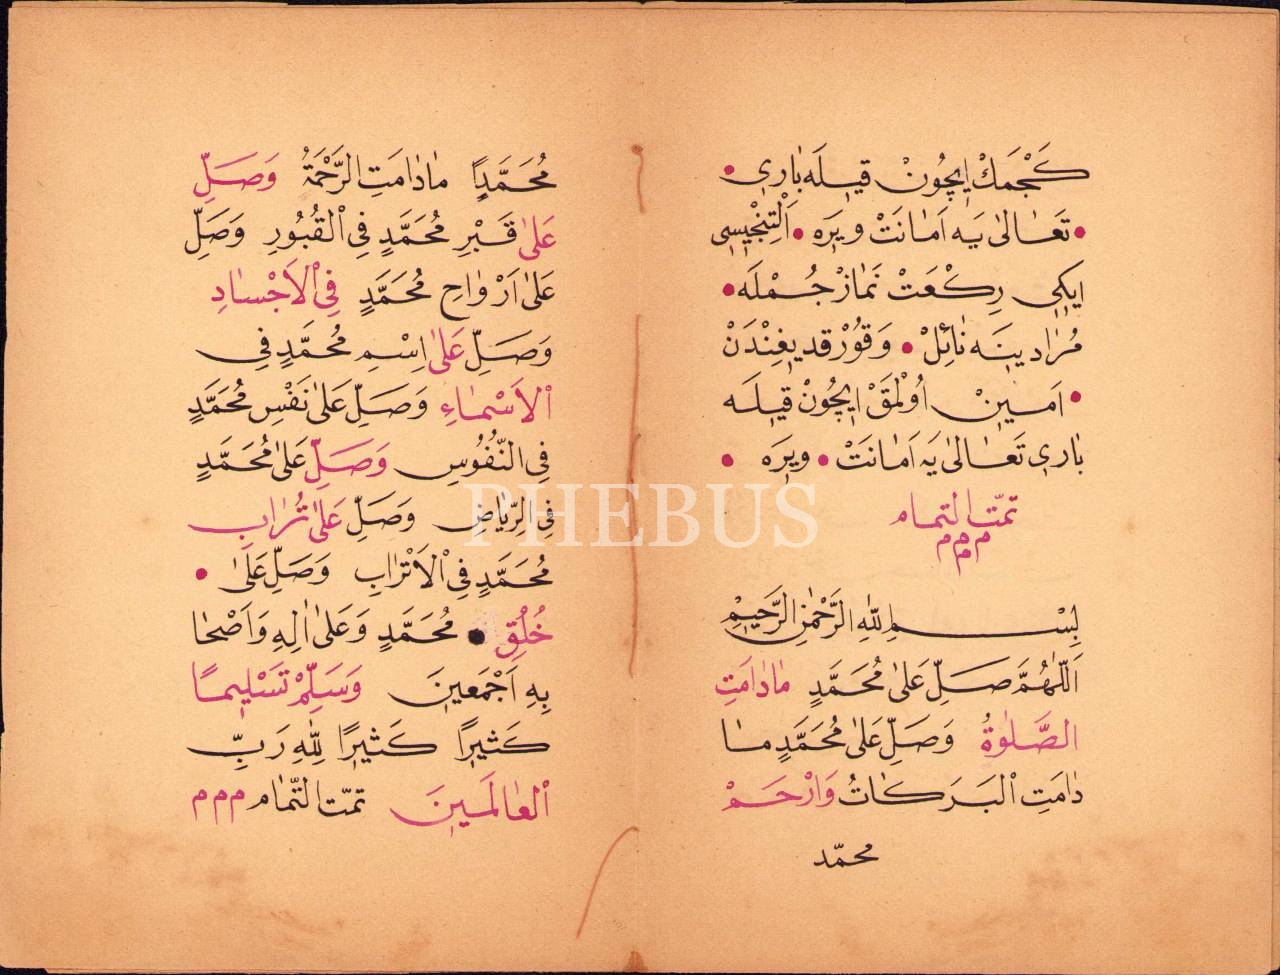 كَجْمَكْ اِيچُونْ قيلَه بٰارى •
• تَعَالٰى يَه اَمٰانَتْ ويرَه • اَلْتِنْجِيسِى
ايكى رِكْعَتْ نَمٰازْ جُمْلَه •
مُرٰادينَه نٰائِلْ • وَقُورْقديغِنْدَنْ
• اَمينْ اُولْمَقْ ايچُونْ قيلَه
بٰارى تَعَالٰى يَه اَمٰانَتْ • ويرَه •
تمّت التمام
م م م
بِسْــمِ اللّٰهِ الرَّحْمٰنِ الرَّحِيمِ
اَللّٰهُمَّ صَلِّ عَلٰى مُحَمَّدٍ مٰادٰامَتِ
الصَّلٰوةُ وَصَلِّ عَلٰى مُحَمَّدٍ مٰا
دٰامَتِ الْبَرَكَاتُ وَارْحَمْ
محمّد
مُحَمَّدًا مٰادٰامَتِ الرَّحْمَةُ وَصَلِّ
عَلٰى قَبْرِ مُحَمَّدٍ فِى الْقُبُورِ وَصَلِّ
عَلٰى اَرْوٰاحِ مُحَمَّدٍ فِى الْاَجْسٰادِ
وَصَلِّ عَلٰى اِسْمِ مُحَمَّدٍ فِى
الْاَسْمٰاءِ وَصَلِّ عَلٰى نَفْسِ مُحَمَّدٍ
فِى النُّفُوسِ وَصَلِّ عَلٰى مُحَمَّدٍ
فِى الرِّيٰاضِ وَصَلِّ عَلٰى تُرٰابِ
مُحَمَّدٍ فِى الْاَتْرٰابِ وَصَلِّ عَلٰى •
خُلْقِ • مُحَمَّدٍ وَعَلٰى اٰلِهِ وَاَصْحٰا
بِهِ اَجْمَعينَ وَسَلِّمْ تَسْليمًا
كَثيرًا كَثيرًا لِلّٰهِ رَبِّ
الْعٰالَمينَ تمّت التّمام م م م
PHEBUS